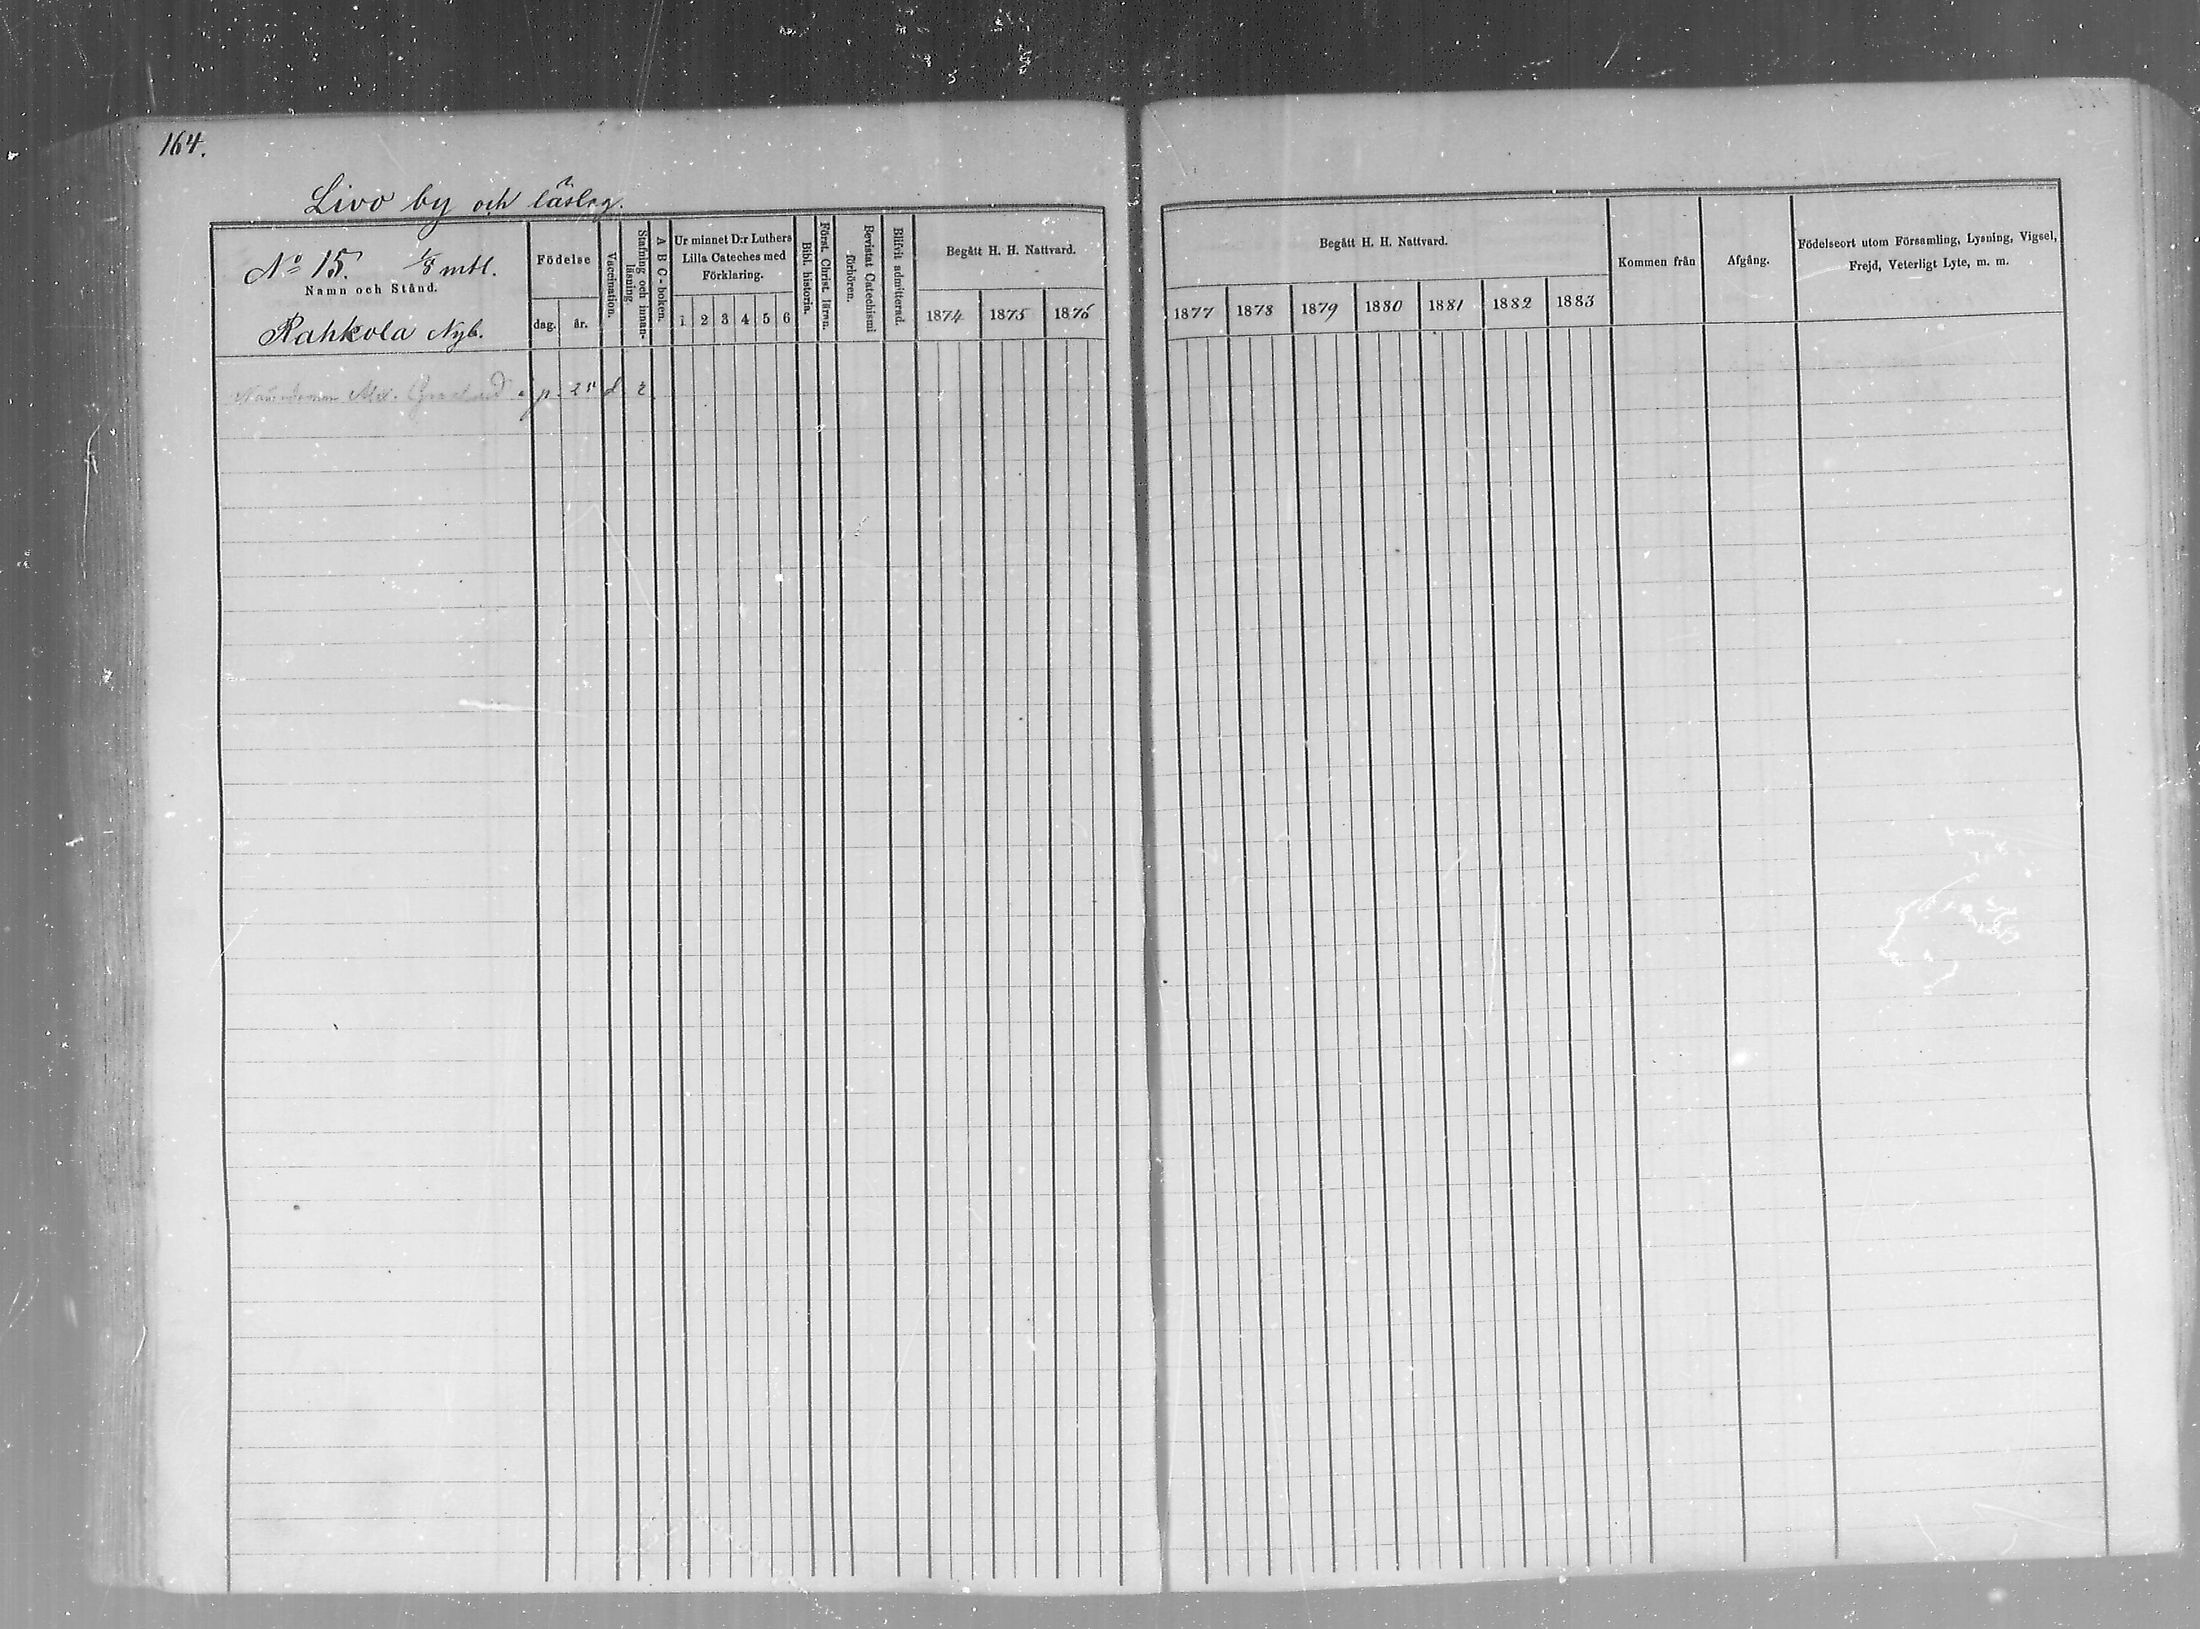 164.
Livo by och läslag.
No 15. 1/8 mtl.
Namn och Stånd.
Rahkola Nyb.
Födelse
dag. år.
Vaccination.
Stafning och innan-
läsning
A B C - boken.
Ur minnet D:r Luthers
Lilla Cateches med
Förklaring.
1 2 3 4 5 6
Bibl. historia.
Först. Christ. läran.
Bevistat Catechismi
förhören.
Blifvit admitterad.
Begått H. H. Nattvard.
1874 1875 1876
Alex. p. 25
Begått H. H. Nattvard.
1877 1878 1879 1880 1881 1882 1883
Kommen från
Afgång.
Födelseort utom Församling, Lysning, Vigsel,
Frejd, Veterligt Lyte, m. m.